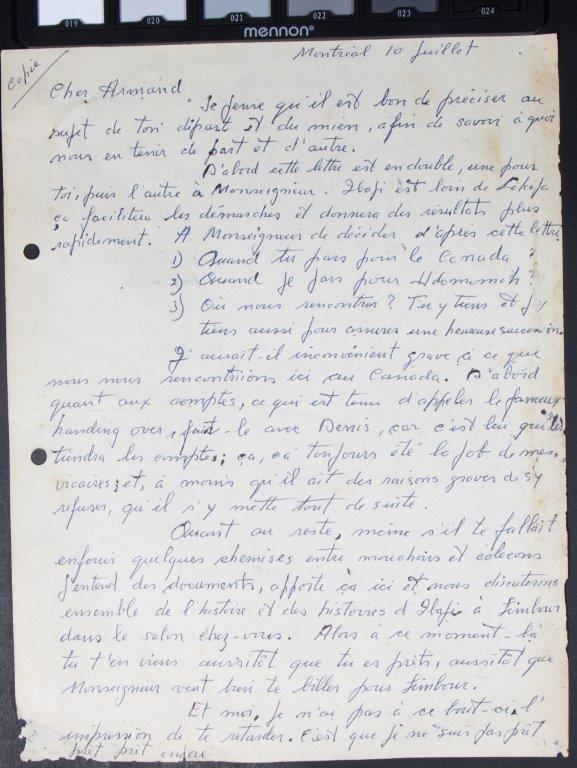 019 020 021 022 023 024
mennon
Copie
Montréal 10 Juillet
Cher Armand
Je pense qu'il est bon de préciser au
sujet de ton départ et du mien, afin de savoir à quoi
nous en tenir de part et d'autre.
D'abord cette lettre est en double, une pour
toi, puis l'autre à Monseigneur. Ibafi est loin de Lokoja
ça facilitera les démarches et donnera des résultats plus
rapidement. A Monseigneur de décider d'après cette lettre
1) Quand tu pars pour le Canada ?
2) Quand je pars pour Udomomoh ?
3) Où nous rencontrer ? Tu y tiens et j'y
tiens aussi pour assurer une heureuse succession.
Y aurait-il inconvénient grave à ce que
nous nous rencontriions ici au Canada. D'abord
quant aux comptes, ce qui est tenu d'appeler le fameux
handing over, fait-le avec Denis, car c'est lui qui
tiendra les comptes; ça, ç'a toujours été la job de mes
vicaires; et, à moins qu'il ait des raisons graves de s'y
refuser, qu'il s'y mette tout de suite.
Quant au reste, même s'il te fallait
enfouir quelques chemises entre mouchoirs et caleçons
j'entend des documents, apporte ça ici et nous discuterons
ensemble de l'histoire et des histoires d'Ibafi à Limbour
dans le salon chez-vous. Alors à ce moment-là
tu t'en viens aussitôt que tu es prêts, aussitôt que
Monseigneur veut bien te biller pour Limbour.
Et moi, je n'ai pas à ce bout-ci, l'
impression de te retarder. C'est que je ne suis pas prêt
prêt prêt encore